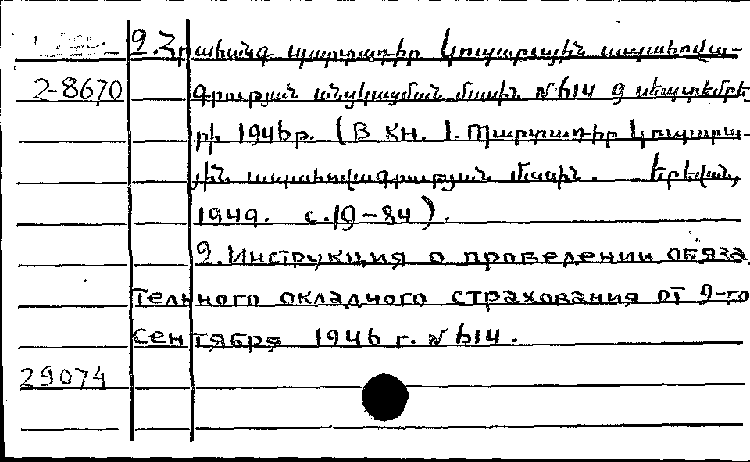 2. Հրահանգ պարտադիր կուլարային ապահովա-
2-8670 գրության անցկացման մասին №614 9 սեպտեմբե
րի 1946թ. (В кн. 1. Պարտադիր
ապահովագրության մասին. Երևան,
1949. с. 19-84).
2. Инструкция о проведении обяза
тельного окладного страхования от 9-го
сентября 1946 г. №614.
29074